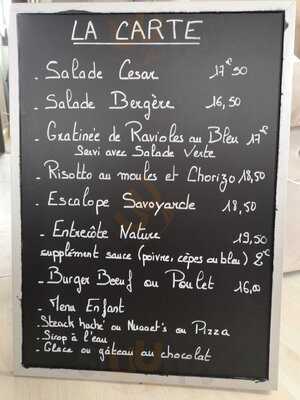 LA CARTE
- Salade Cesar 17€50
- Salade Bergère 16,50
- Gratinée de Ravioles au Bleu 17€
Servi avec Salade Verte
- Risotto au moules et Chorizo 18,50
- Escalope Savoyarde 18,50
- Entrecôte Nature 19,50
supplément sauce (poivre, cèpes ou bleu) 2€
- Burger Boeuf ou Poulet 16,00
- Menu Enfant
- Steack haché ou Nugget's ou Pizza
- Sirop à l'eau
- Glace ou gâteau au chocolat